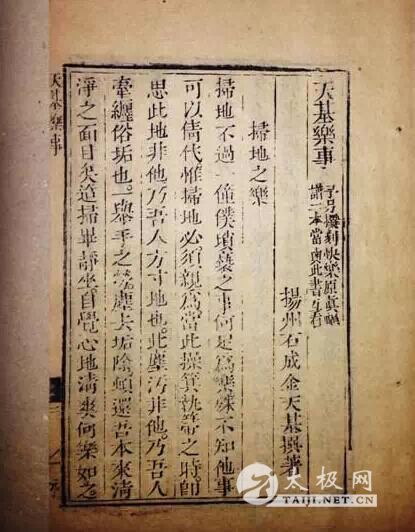 天基樂事
予另撰刻快樂原真福
譜二本當與此書互看
揚州石成金天基撰著
掃地之樂
掃地不過一僮僕瑣褻之事何足爲樂殊不知他事
可以倩代惟掃地必須親爲當此操箕執箒之時卽
思此地非他乃吾人方寸地也此塵污非他乃吾人
牽纏俗垢也一舉手之勞塵去垢除頓還吾本來清
淨之面目矣迨掃畢靜坐自覺心地清爽何樂如之
天基樂事
太极网
TAIJI.NET.CN